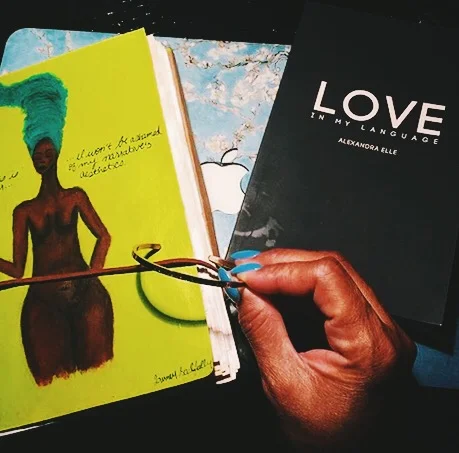 is
...il won't be ashamed
of my narrative's
aesthetics
LOVE
IN MY LANGUAGE
ALEXANDRA ELLE